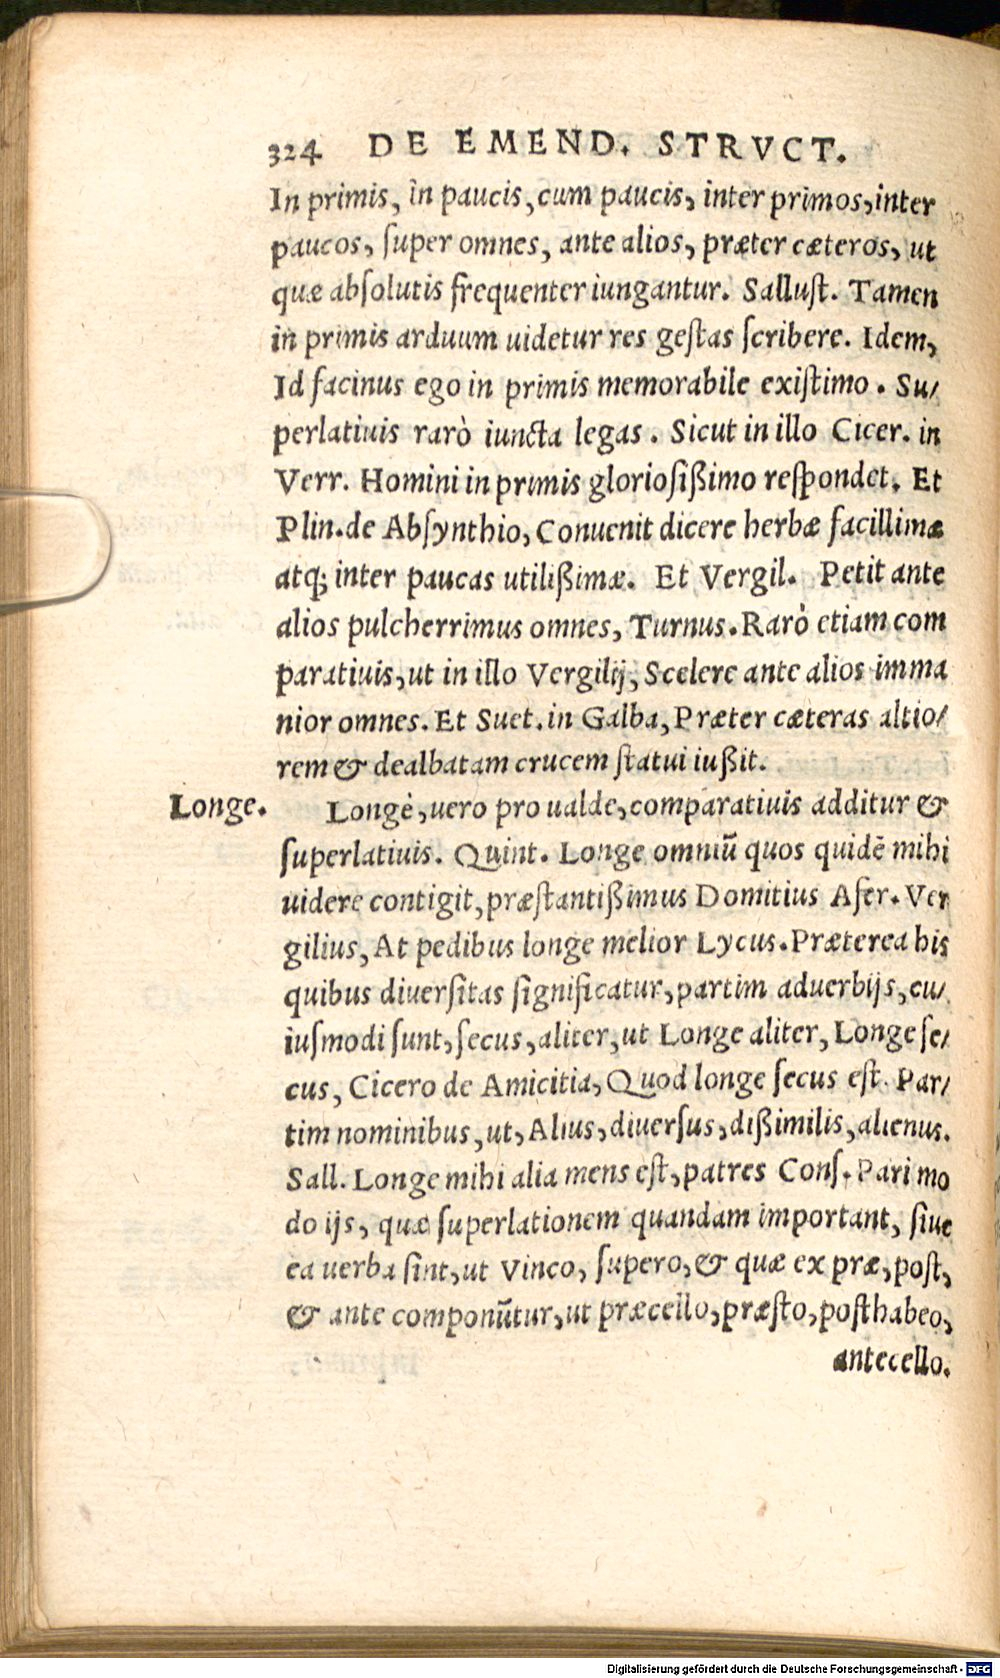 324 DE EMEND. STRVCT.
In primis, in paucis, cum paucis, inter primos, inter
paucos, ſuper omnes, ante alios, præter cæteros, ut
quæ abſolutis frequenter iungantur. Salluſt. Tamen
in primis arduum uidetur res geſtas ſcribere. Idem,
Id facinus ego in primis memorabile exiſtimo. Su/
perlatiuis rarò iuncta legas. Sicut in illo Cicer. in
Verr. Homini in primis glorioſißimo reſpondet. Et
Plin. de Abſynthio, Conuenit dicere herbæ facillimæ
atq; inter paucas utilißimæ. Et Vergil. Petit ante
alios pulcherrimus omnes, Turnus. Rarò etiam com
paratiuis, ut in illo Vergilij, Scelere ante alios imma
nior omnes. Et Suet. in Galba, Præter cæteras altio/
rem & dealbatam crucem ſtatui iußit.
Longe. Longè, uero pro ualde, comparatiuis additur &
ſuperlatiuis. Quint. Longe omniũ quos quidẽ mihi
uidere contigit, præſtantißimus Domitius Afer. Ver
gilius, At pedibus longe melior Lycus. Præterea his
quibus diuerſitas ſignificatur, partim aduerbijs, cu/
iuſmodi ſunt, ſecus, aliter, ut Longe aliter, Longe ſe/
cus, Cicero de Amicitia, Quod longe ſecus eſt. Par/
tim nominibus, ut, Alius, diuerſus, dißimilis, alienus.
Sall. Longe mihi alia mens eſt, patres Conſ. Pari mo
do ijs, quæ ſuperlationem quandam important, ſiue
ea uerba ſint, ut Vinco, ſupero, & quæ ex præ, poſt,
& ante componũtur, ut præcello, præſto, poſthabeo,
antecello.
Digitalisierung gefördert durch die Deutsche Forschungsgemeinschaft - DFG